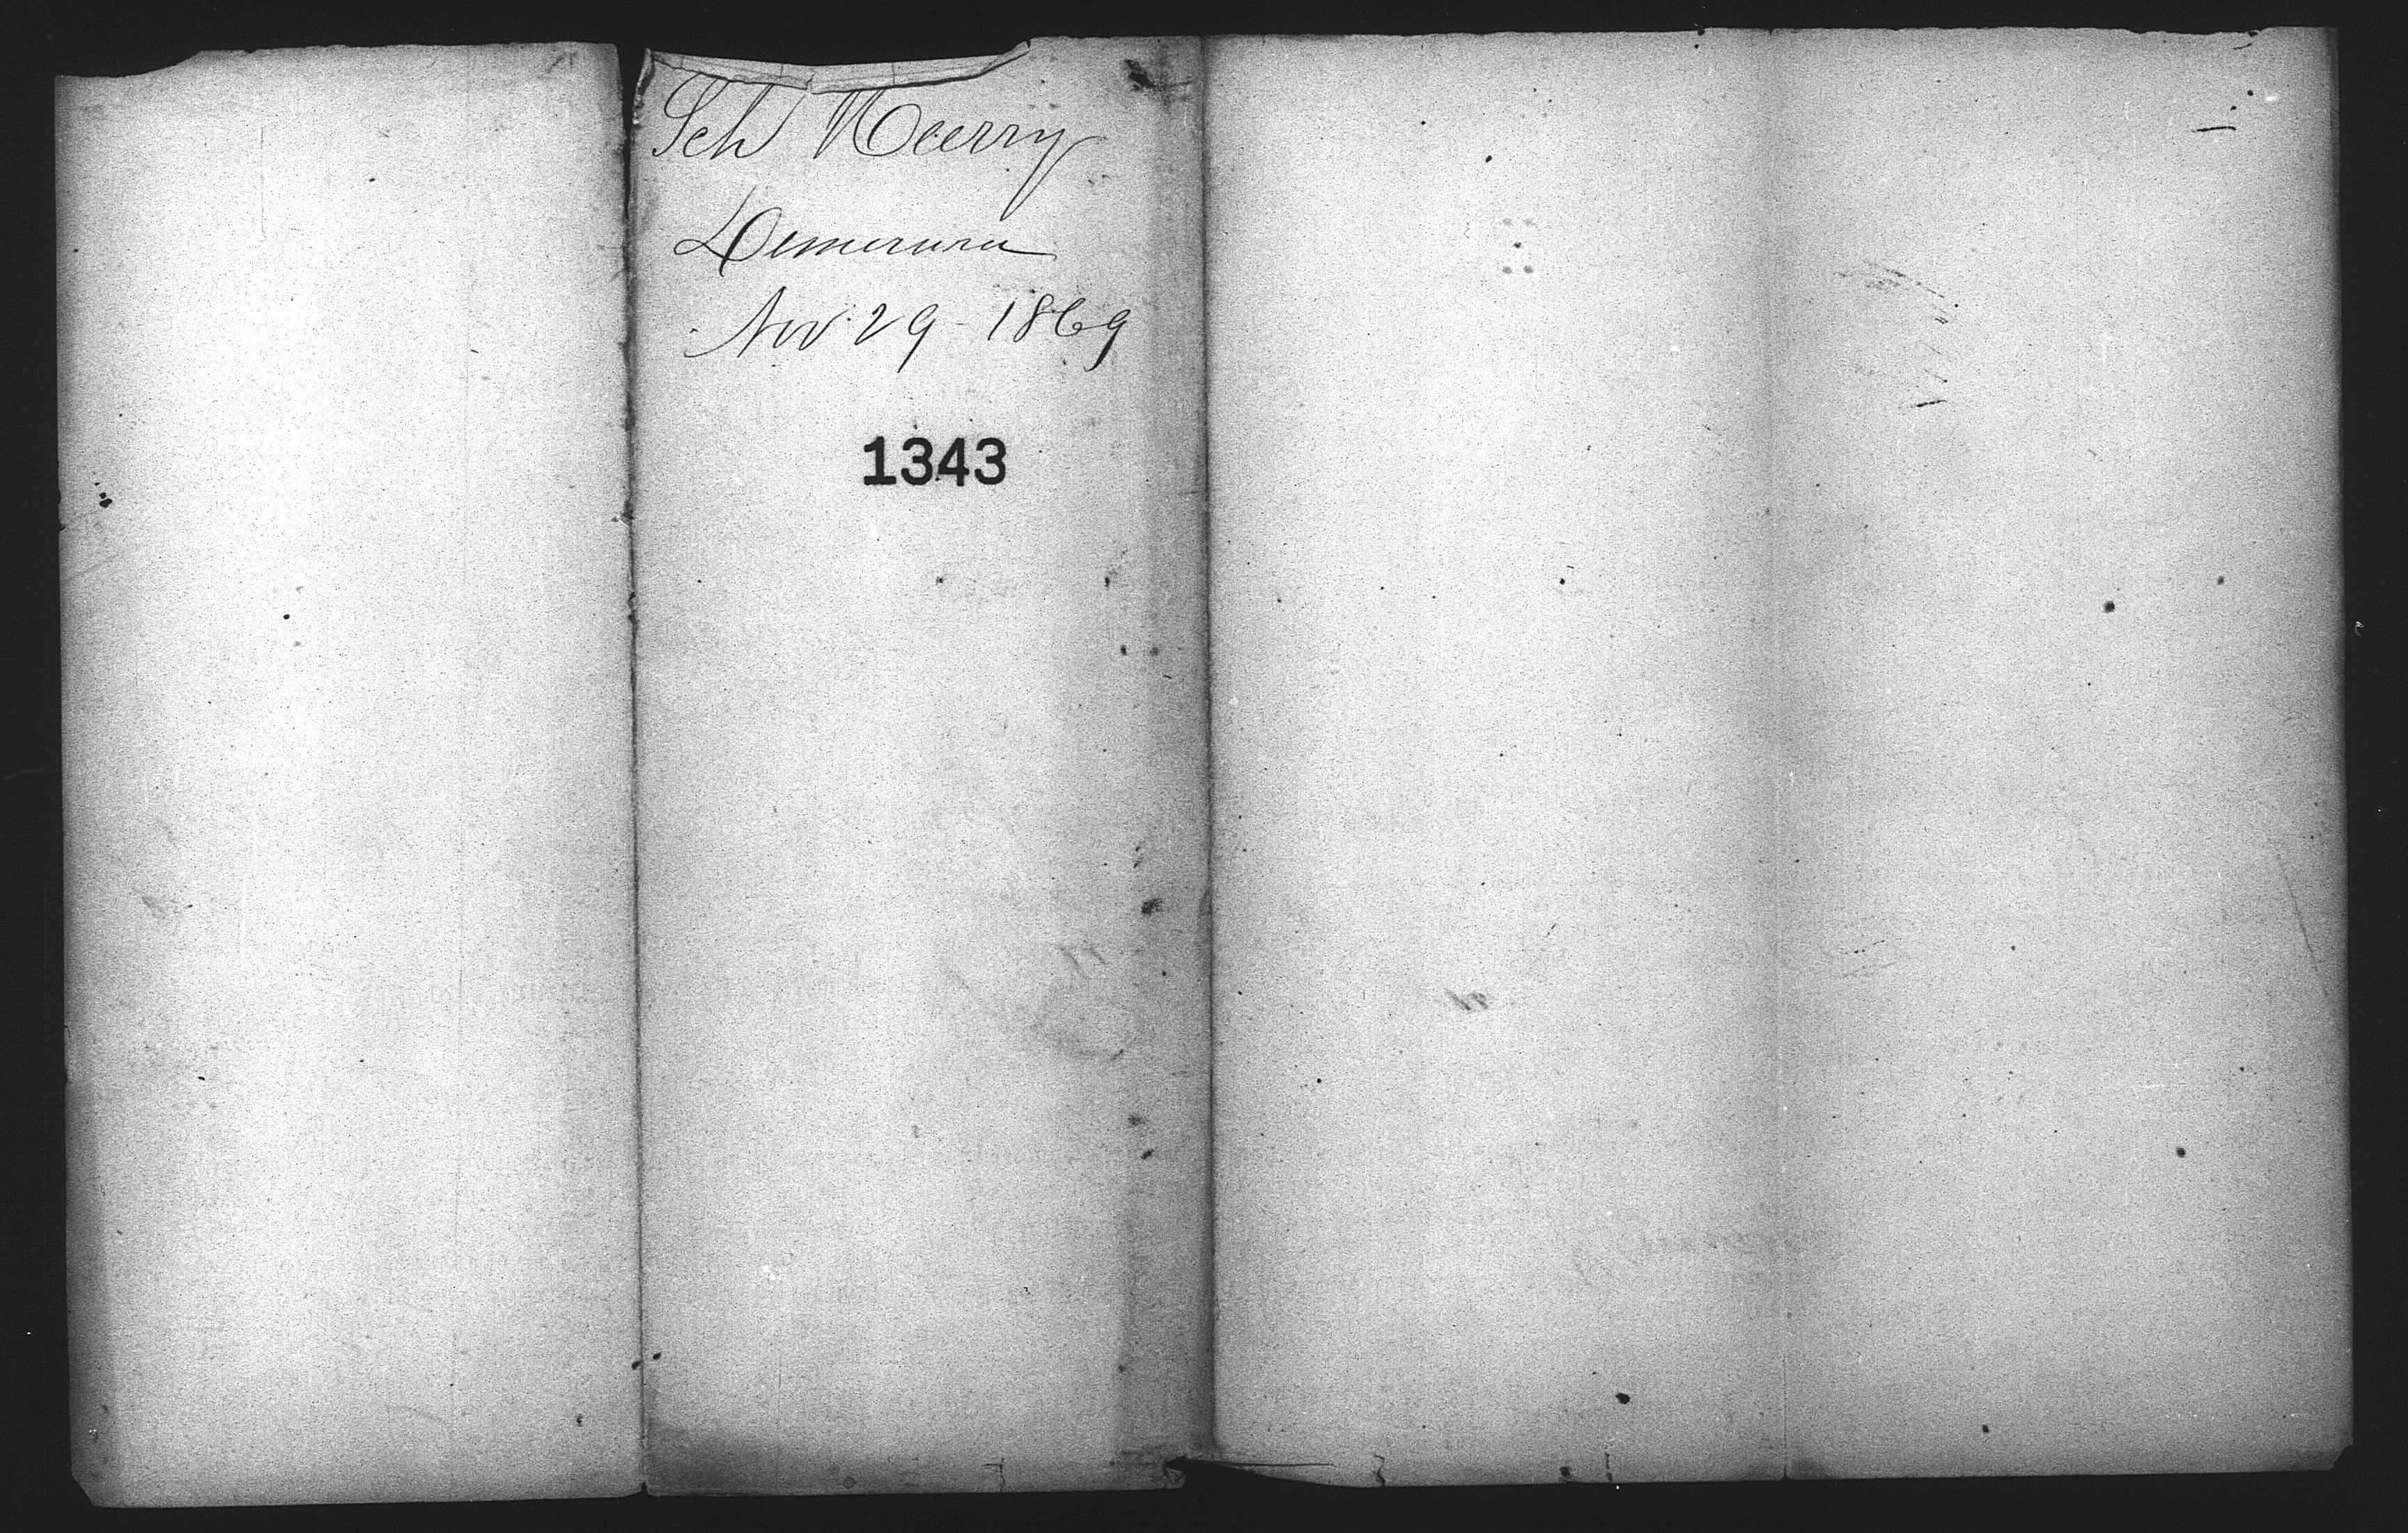 Sch Merry
Demerara
Nov 29 - 1869
1343